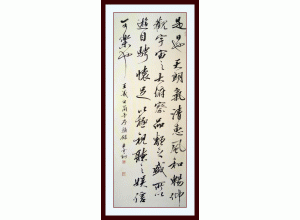 是日也天朗氣清惠風和暢仰
觀宇宙之大俯察品類之盛所以
遊目騁懷足以極視聽之娛信
可樂也
王羲之蘭亭序